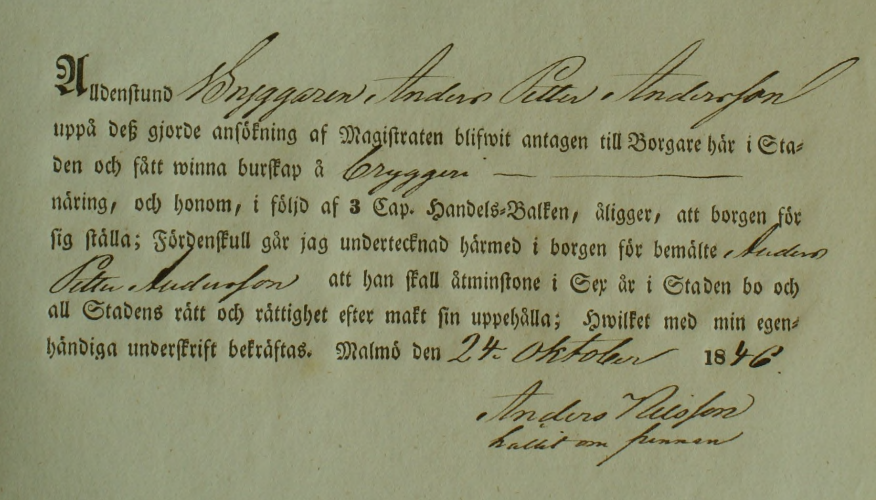 Alldenstund Bryggaren Anders Petter Andersson
uppå deß gjorde ansökning af Magistraten blifwit antagen till Borgare här i Sta-
den och fått winna burskap å bryggeri — ———
näring, och honom, i följd af 3 Cap. Handels-Balken, åligger, att borgen för
sig ställa; Fördenskull går jag undertecknad härmed i borgen för bemälte Anders
Petter Andersson att han skall åtminstone i Sex år i Staden bo och
all Stadens rätt och rättighet efter makt sin uppehålla; Hwilket med min egen-
händiga underskrift bekräftas. Malmö den 24. Oktober 1846.
Anders Nilsson
hållit om pennan